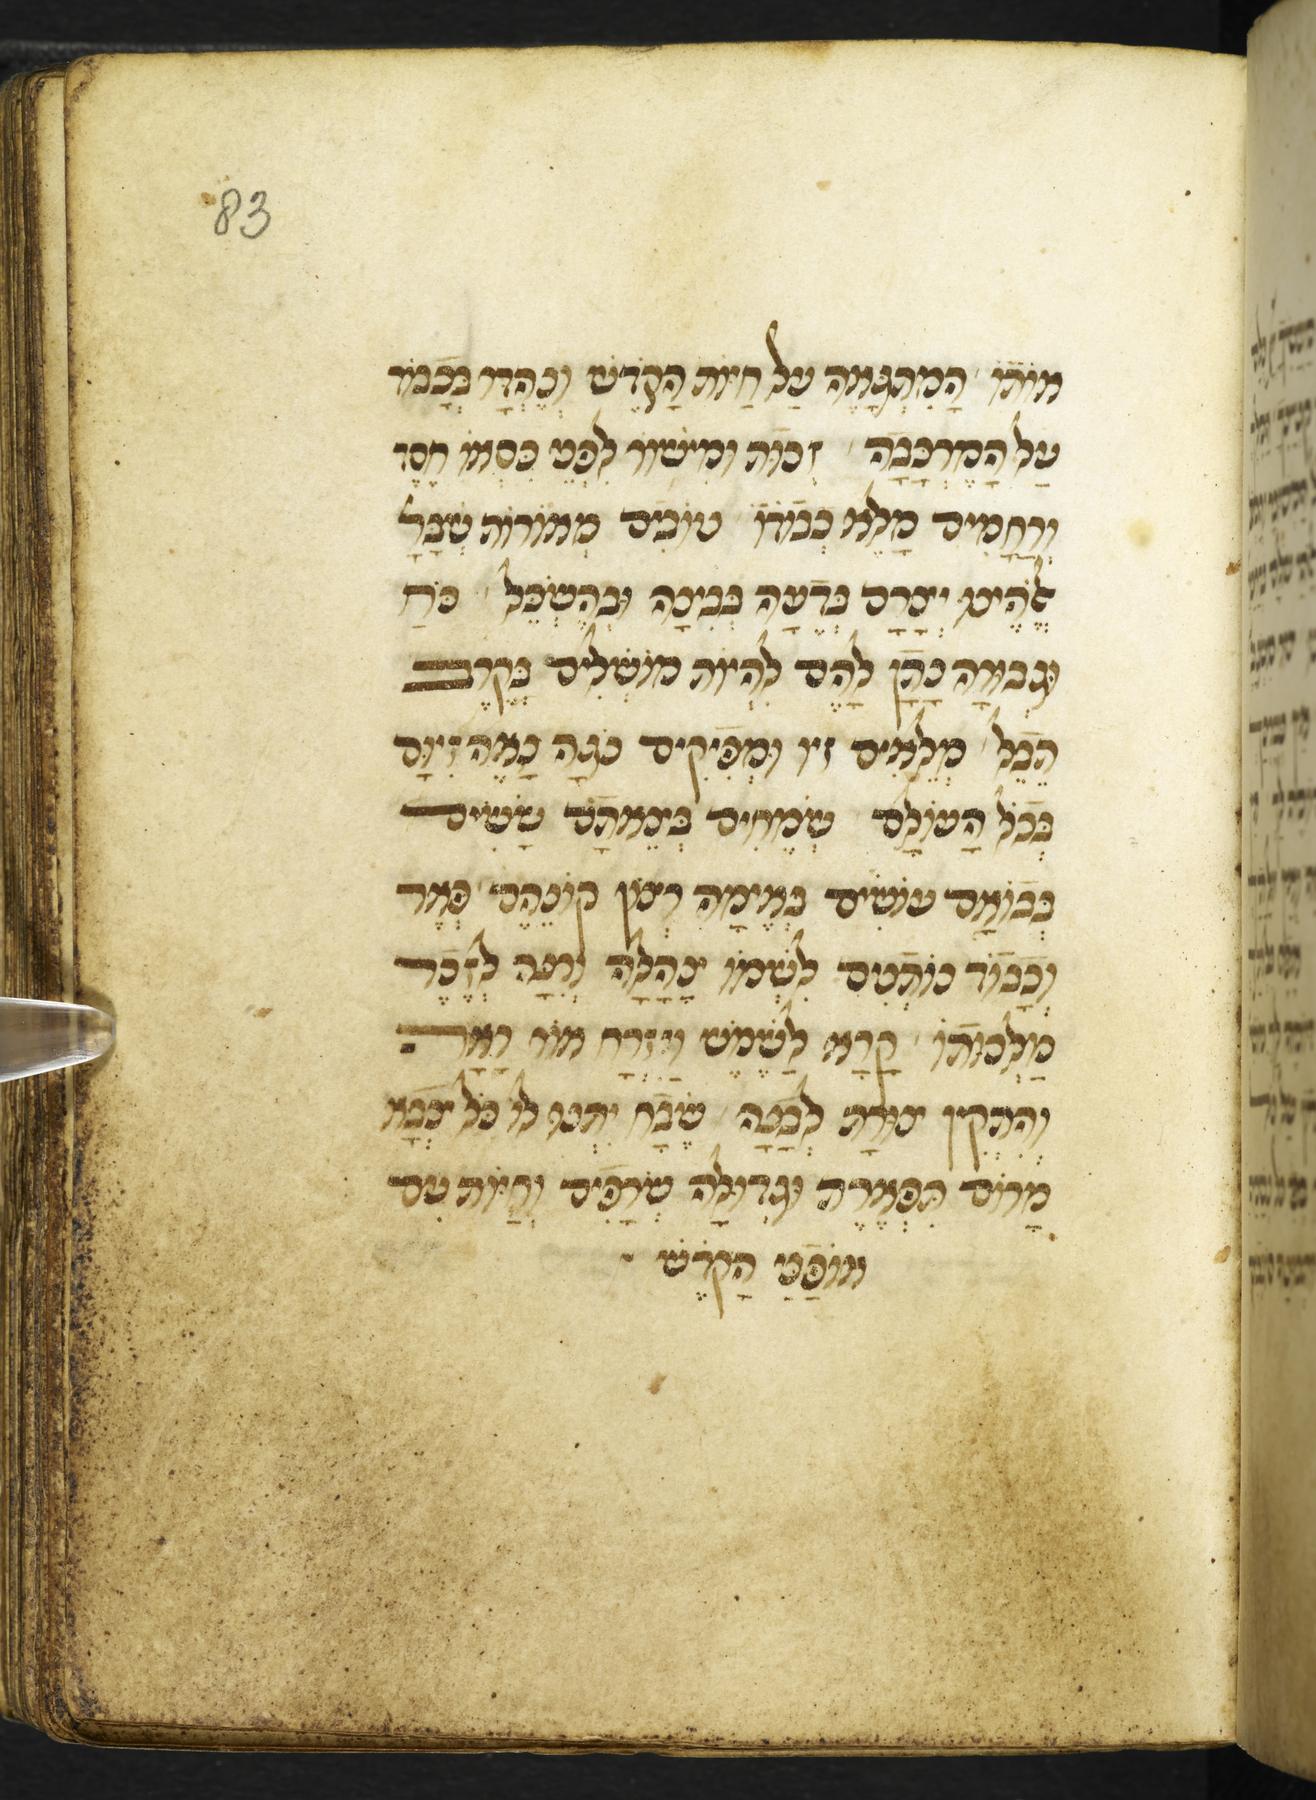 83
אותו המתגאה על חיות הקדש ונהדר בכבוד
על המרכבה זכות ומישור לפני כסאו חסד
ורחמים מלא כבודו טובים מאורות שברא
אלהינו יצרם בדעה בבינה ובהשכל כח
וגבורה נתן להם להיות מושלים בקרב
תבל מלאים זיו ומפיקים נגה נאה זיום
בכל העולם שמחים בצאתם ששים
בבואם עושים באימה רצון קונהם פאר
וכבוד נותנים לשמו צהלה ורנה לזכר
מלכותו קרא לשמש ויזרח אור ראה
והתקין צורת לבנה שבח יתנו לו כל צבא
מרום תפארת וגדולה שרפים וחיות עם
אופני הקדש